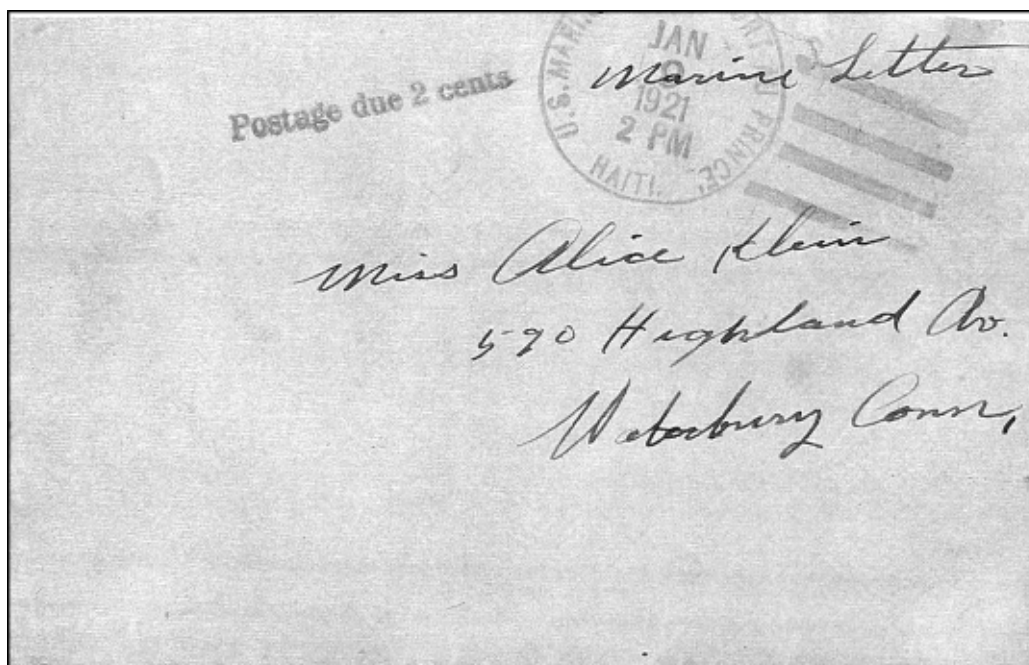 Postage due 2 cents
U.S. MARINE PORT AU PRINCE, HAITI.
JAN
1921
2 PM
Marine Letter
Miss Alice Klein
590 Highland Av.
Waterbury Conn,